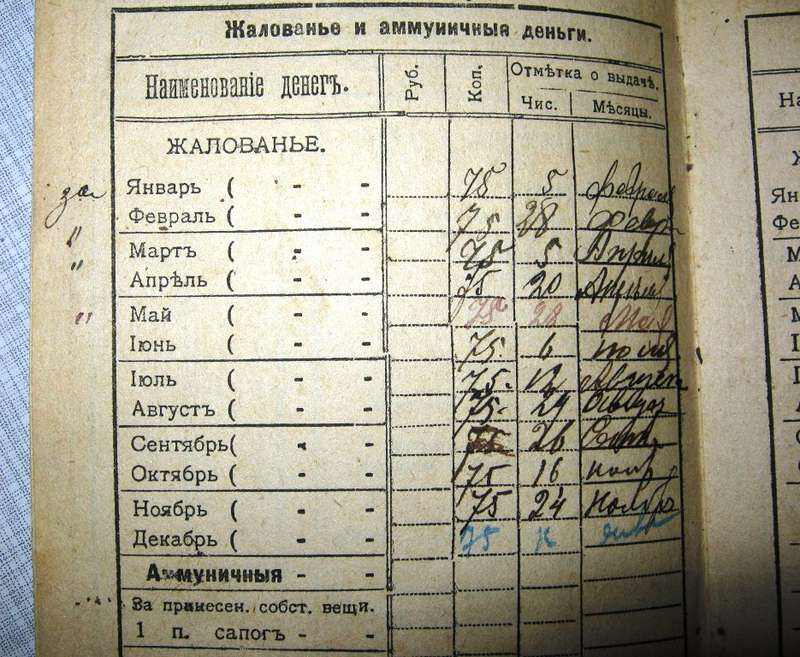 Жалованье и аммуничныя деньги.
Наименованіе денегъ. Руб. Коп. Отмѣтка о выдачѣ.
Чис. Мѣсяцы.
На
ЖАЛОВАНЬЕ.
за Январь ( - - 75 5 февраля Ян
" Февраль ( - - 75 28 февр Фе
" Мартъ ( - - 75 5 Апрѣля М
Апрѣль ( - - 75 20 Апрѣля А
" Май ( - - 75 28 Мая
Іюнь ( - - 75. 6 июля
Іюль ( - - 75. 12 Август
Августъ ( - - 75. 29
Сентябрь( - - 75 26
Октябрь ( - - 75 16 нояб
Ноябрь ( - - 75 24 Ноябрь
Декабрь ( - - 75
Аммуничныя - -
За принесен. собст. вещи.
1 п. сапогъ - -